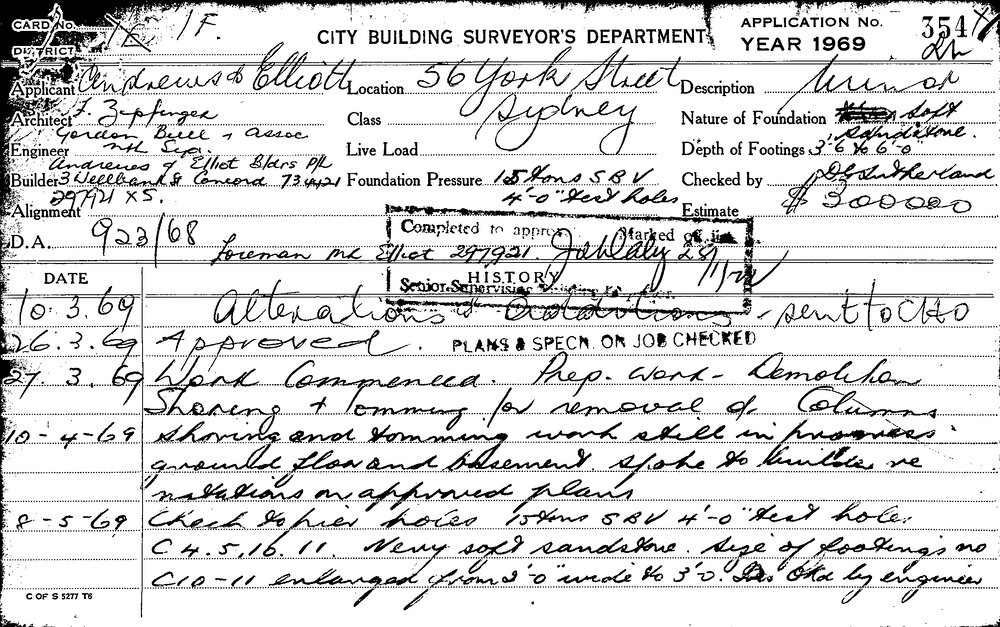 CARD No. 1F. CITY BUILDING SURVEYOR'S DEPARTMENT APPLICATION No. 354
DISTRICT YEAR 1969
Applicant Andrews & Elliott Location 56 York Street Description Minor
Architect F. Zipfinger Class Sydney Nature of Foundation Soft
Gordon Bull & Assoc sandstone.
Engineer Nth Syd. Live Load Depth of Footings 3'6 to 6'-0"
Andrews & Elliot Bldrs P/L
Builder 3 Wellbank St Concord 734421 Foundation Pressure 15 tons S B V Checked by Sutherland
297921 X5. 4'-0" test holes
Alignment Estimate $ 300000
D.A. 923/68 Completed to approv Marked off
Foreman Mr Elliot 297921.
DATE HISTORY
Senior Supervising
10.3.69 Alterations & Additions - sent to CHO
26.3.69 Approved. PLANS & SPECN. ON JOB CHECKED
27.3.69 Work Commenced. Prep. work - Demolition
Shoring + Tomming for removal of Columns
10-4-69 Shoring and tomming work still in progress
ground floor and basement. spoke to builder re
notations on approved plans
8-5-69 Check to pier holes 15 tons S B V 4'-0" test holes
C 4. 5. 10. 11. Very soft sandstone. Size of footings no
C10-11 enlarged from 2'-0" wide to 3'-0. Okd by engineer
C OF S 5277 T6